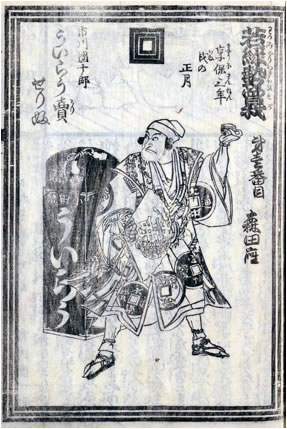 若緑勢曽我
第壱番目 森田座
享保三年
戌の
正月
市川團十郎
ういらう賣
せりふ
ういらう